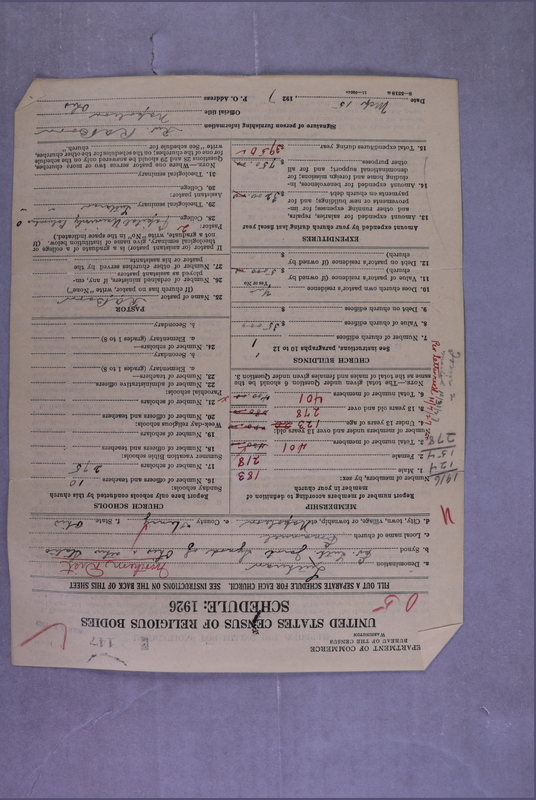 147
DEPARTMENT OF COMMERCE
BUREAU OF THE CENSUS
WASHINGTON
UNITED STATES CENSUS OF RELIGIOUS BODIES
SCHEDULE: 1926
FILL OUT A SEPARATE SCHEDULE FOR EACH CHURCH. SEE INSTRUCTIONS ON THE BACK OF THIS SHEET
a. Denomination Lutheran
b. Synod Ev. Luth. Joint Synod of Ohio & other States
c. Local name of church Emanuel
d. City, town, village, or township, etc. Napoleon e. County Henry f. State Ohio
MEMBERSHIP
Report number of members according to definition of member in your church
Number of members, by sex:
1. Male 183
2. Female 218
3. Total number of members 401
Number of members under and over 13 years old:
4. Under 13 years of age 123
5. 13 years old and over 278
6. Total number of members 401
NOTE.—The total given under Question 6 should be the same as the total of males and females given under Question 3.
CHURCH BUILDINGS
See instructions, paragraphs 10 to 12
7. Number of church edifices 1
8. Value of church edifices $ 35000
9. Debt on church edifices $
10. Does church own pastor's residence
(Yes or No)
11. Value of pastor's residence (if owned by church) $ 5000
12. Debt on pastor's residence (if owned by church) $
EXPENDITURES
Amount expended by your church during last fiscal year
13. Amount expended for salaries, repairs, and other running expenses; for improvements or new building; and for payments on church debt $ 3200
14. Amount expended for benevolences, including home and foreign missions; for denominational support; and for all other purposes $ 750
15. Total expenditures during year $ 3950
CHURCH SCHOOLS
Report here only schools conducted by this church
Sunday schools:
16. Number of officers and teachers 10
17. Number of scholars 275
Summer vacation Bible schools:
18. Number of officers and teachers
19. Number of scholars
Week-day religious schools:
20. Number of officers and teachers
21. Number of scholars
Parochial schools:
22. Number of administrative officers
23. Number of teachers—
a. Elementary (grades 1 to 8)
b. Secondary
24. Number of scholars—
a. Elementary (grades 1 to 8)
b. Secondary
PASTOR
25. Name of pastor
(If church has no pastor, write "None")
26. Number of ordained ministers, if any, employed as assistant pastors
27. Number of other churches served by the pastor or his assistants
If pastor (or assistant pastor) is a graduate of a college or theological seminary, give name of institution below. (If not a graduate, write "No" in the space indicated.)
Pastor:
28. College Capital University Columbus O
29. Theological seminary
Assistant pastor:
30. College
31. Theological seminary
NOTE.—Where one pastor serves two or more churches, Questions 28 and 29 should be answered only on the schedule for one of the churches; on the schedules for the other churches, write "See schedule for church."
Signature of person furnishing information
Official title
P. O. Address Napoleon Ohio
Date Mch 15 1927
8—5218a